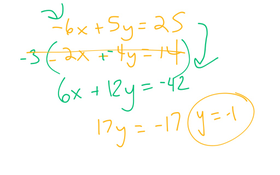 -6x + 5y = 25
-3 (-2x + -4y = 14)
6x + 12y = -42
17y = -17 y = -1